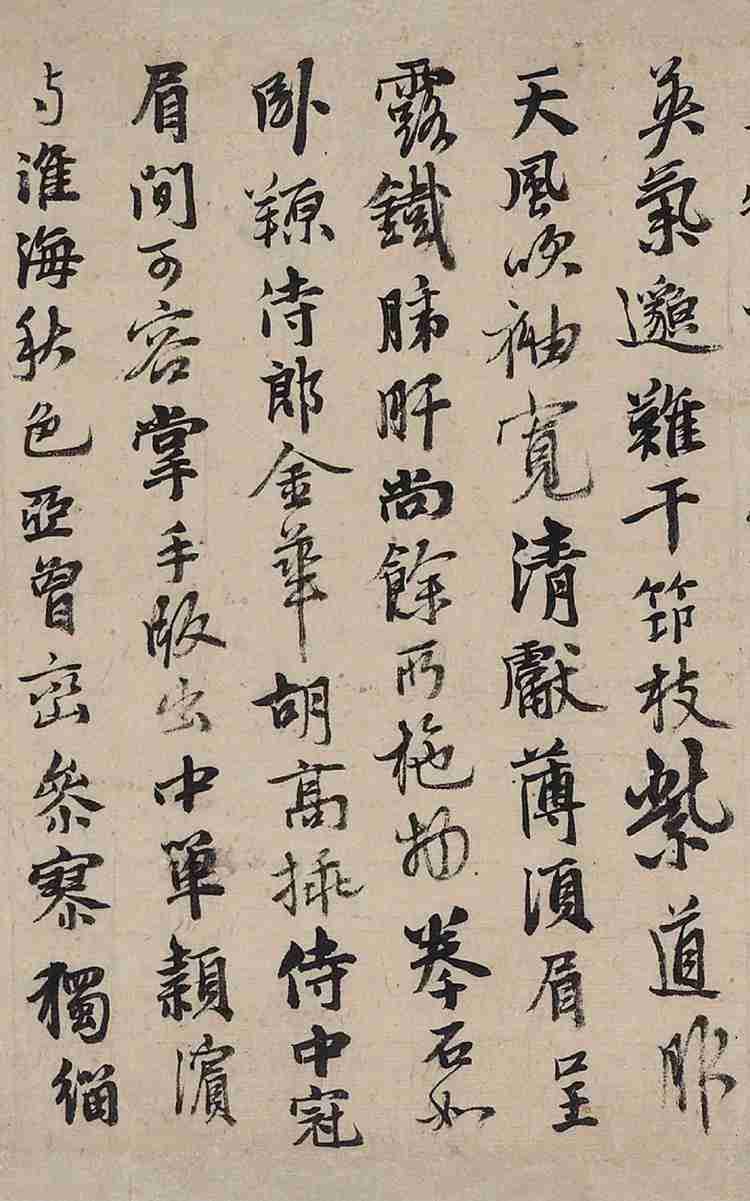 英氣邈難干筇枝紫道服
天風吹袖寬清獻薄須眉呈
露鐵肺肝尚餘所物拳石如
臥羱侍郎金華胡高插侍中冠
眉間可容掌手版出中單潁濱
与淮海秋色亞曾峦參寥獨緇